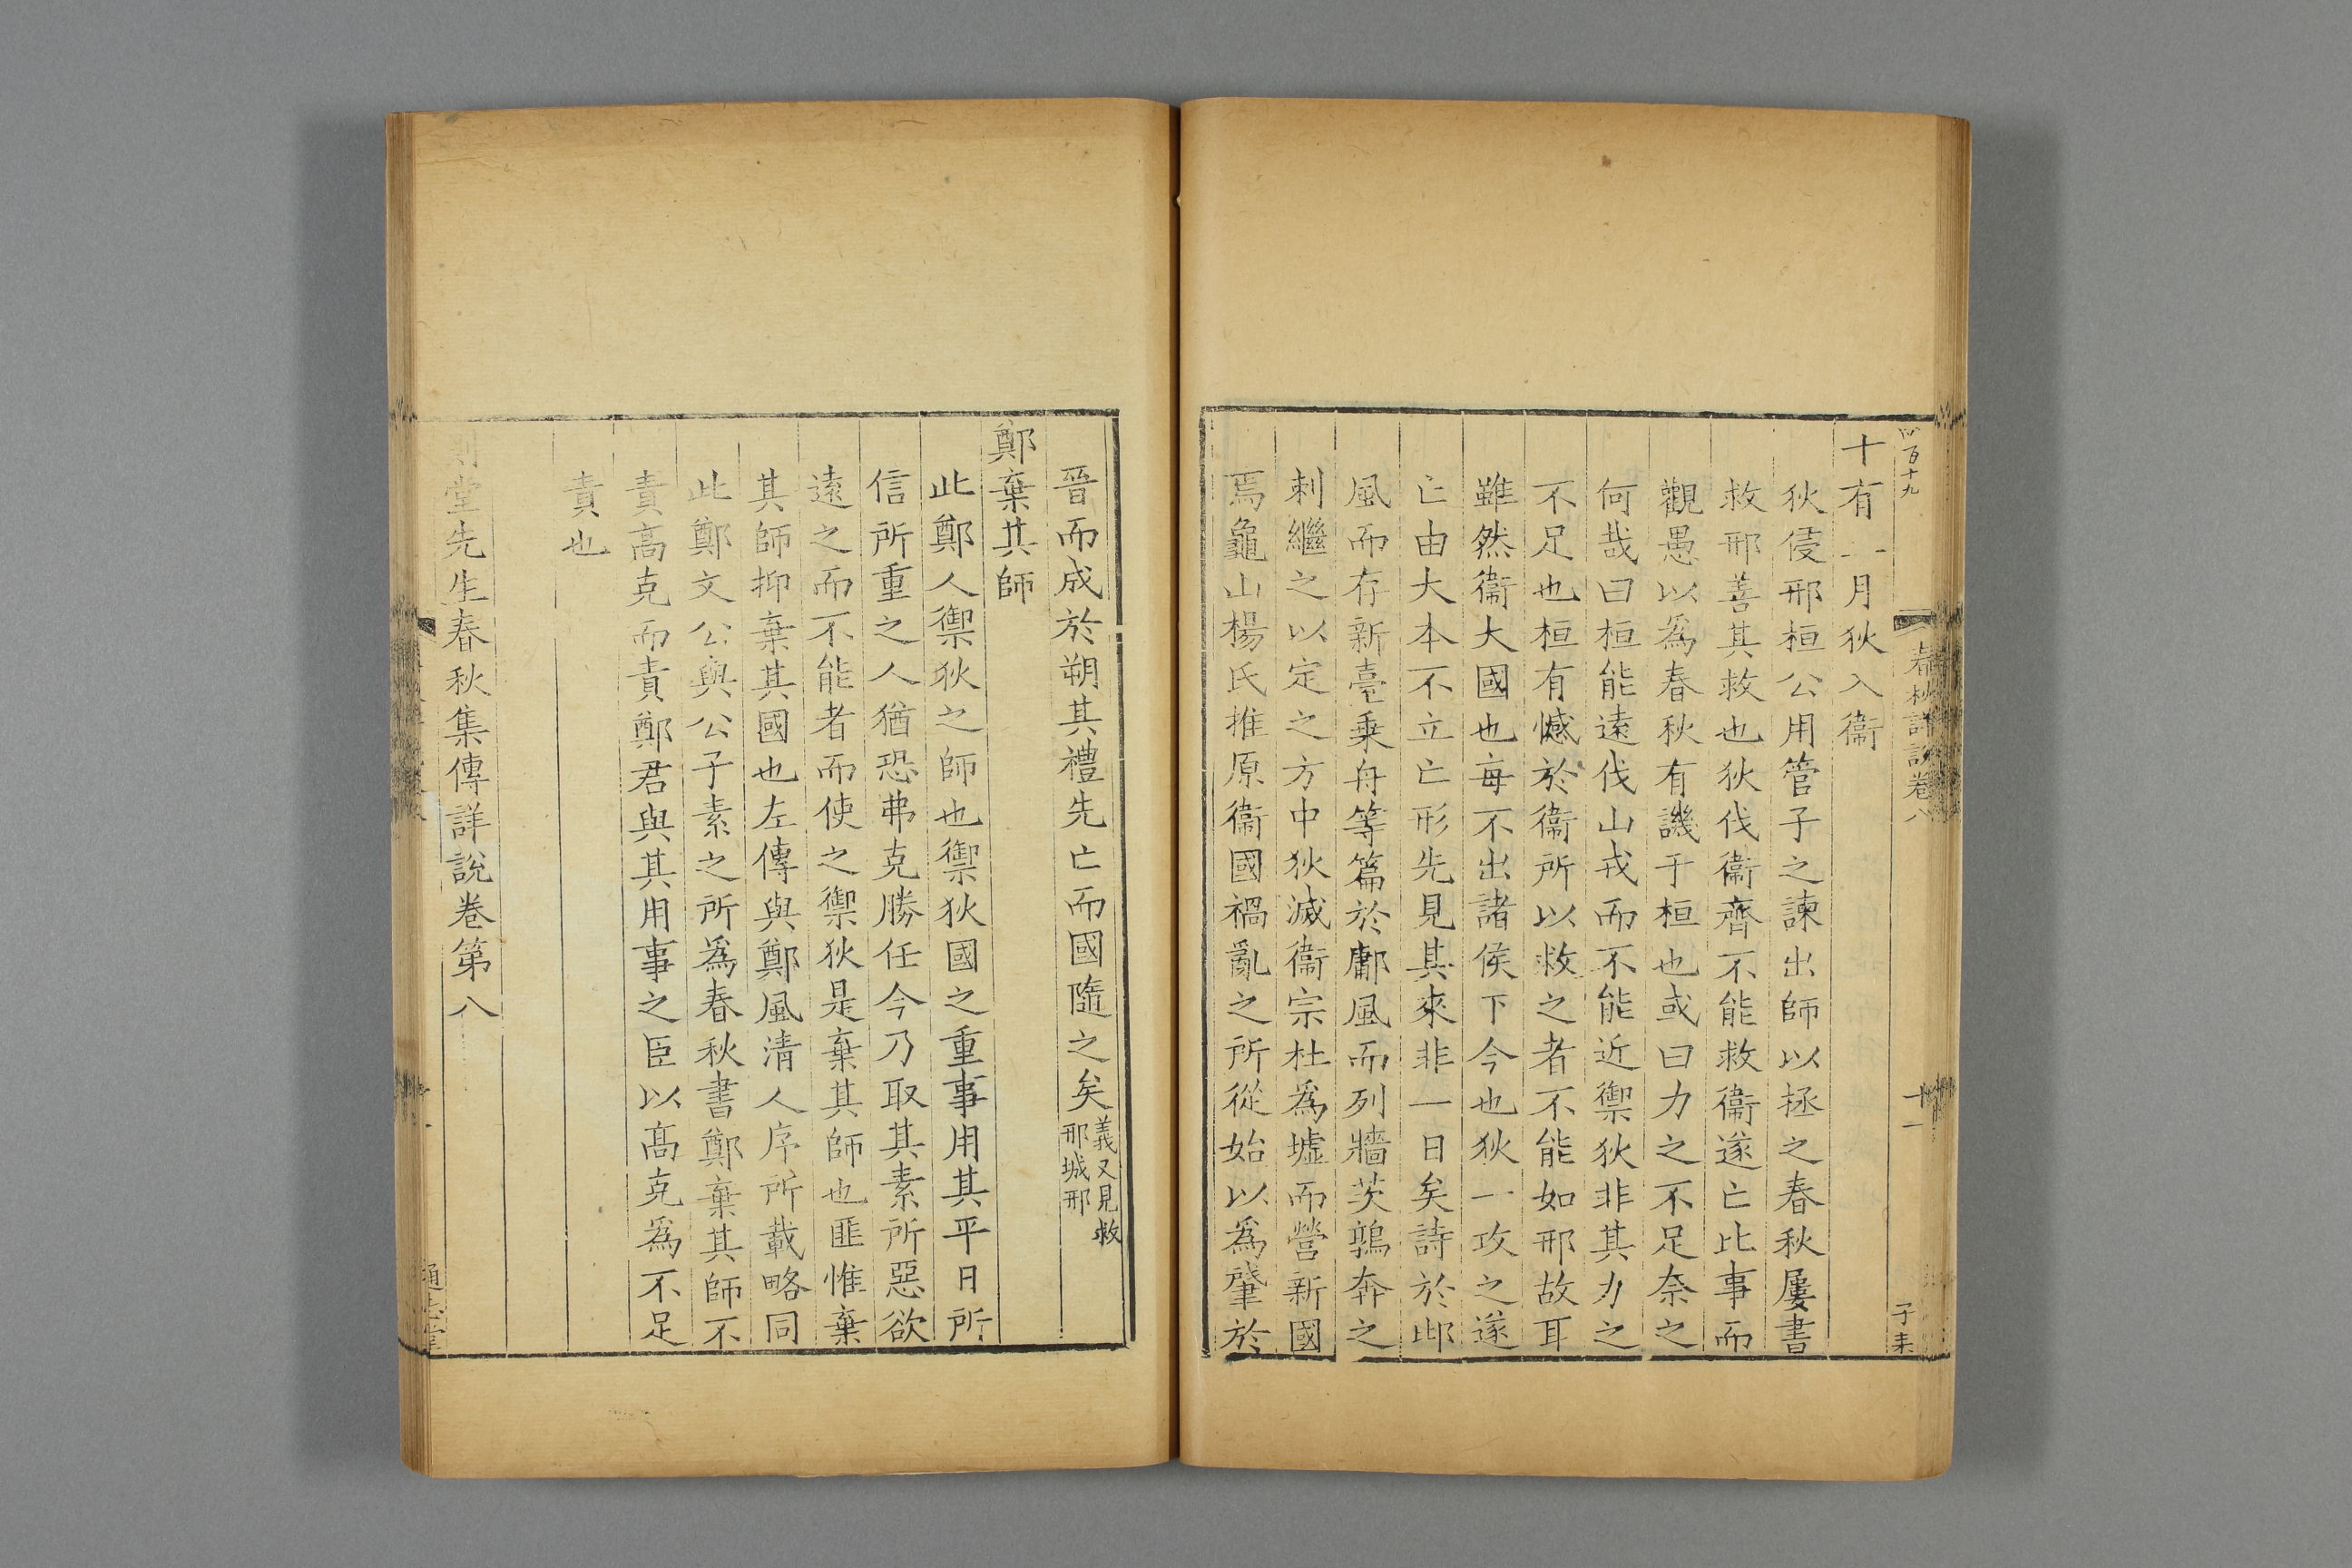 四百十九
春秋詳說卷八
十一
子耒
十有二月狄入衞
狄侵邢桓公用管子之諫出師以拯之春秋屢書
救邢善其救也狄伐衞齊不能救衞遂亡此事而
觀愚以爲春秋有譏于桓也或曰力之不足奈之
何哉曰桓能遠伐山戎而不能近禦狄非其力之
不足也桓有憾於衞所以救之者不能如邢故耳
雖然衞大國也每不出諸侯下今也狄一攻之遂
亡由大本不立亡形先見其來非一日矣詩於邶
風而存新臺乗舟等篇於鄘風而列牆茨鶉奔之
刺繼之以定之方中狄滅衞宗社爲墟而營新國
焉龜山楊氏推原衞國禍亂之所從始以爲肇於
晉而成於朔其禮先亡而國隨之矣義又見救
邢城邢
鄭棄其師
此鄭人禦狄之師也禦狄國之重事用其平日所
信所重之人猶恐弗克勝任今乃取其素所惡欲
遠之而不能者而使之禦狄是棄其師也匪惟棄
其師抑棄其國也左傳與鄭風清人序所載略同
此鄭文公與公子素之所爲春秋書鄭棄其師不
責高克而責鄭君與其用事之臣以高克爲不足
責也
則堂先生春秋集傳詳說卷第八
通志堂